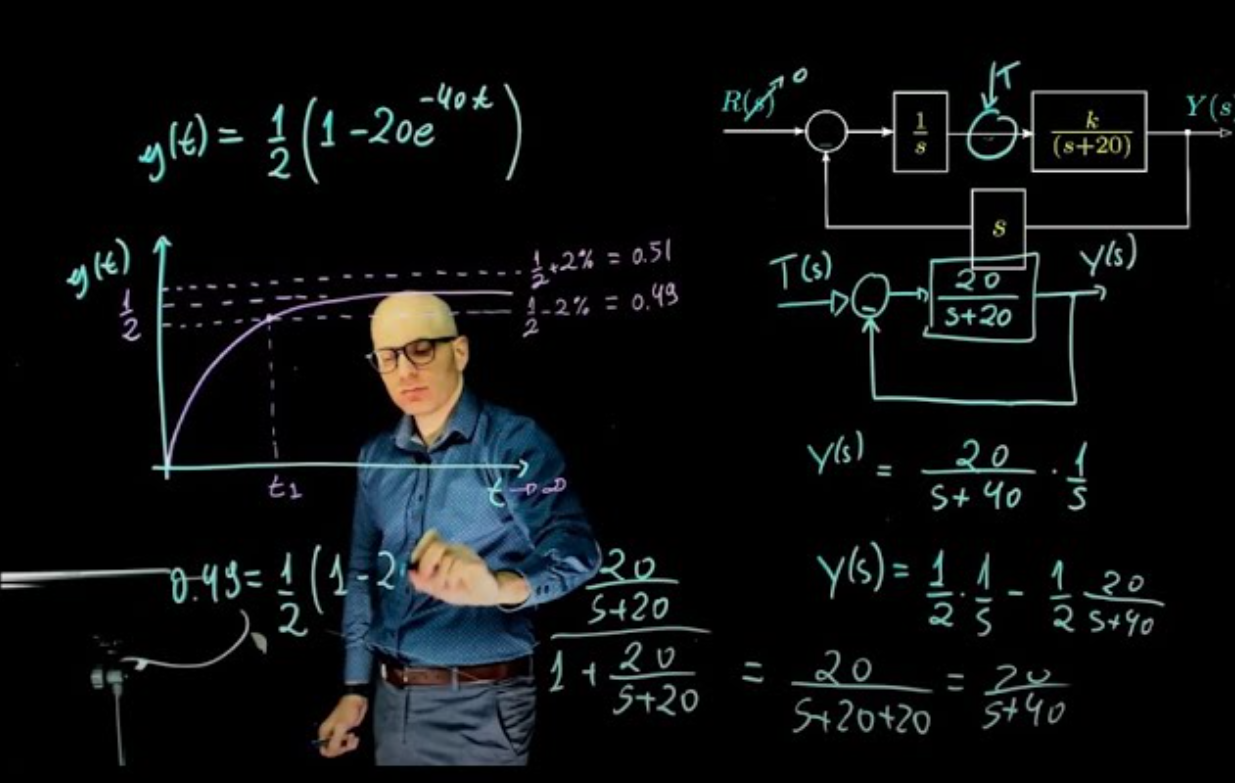 y(t) = 1/2 (1 - 20e^{-40t})
y(t)
1/2
1/2 + 2% = 0.51
1/2 - 2% = 0.49
t1
t → ∞
0.49 = 1/2 (1 - 2
R(s) 0
1/s
T
k/(s+20)
Y(s)
s
T(s)
20/(s+20)
Y(s)
Y(s) = 20/(s+40) · 1/s
Y(s) = 1/2 · 1/s - 1/2 20/(s+40)
(20/(s+20))/(1 + 20/(s+20)) = 20/(s+20+20) = 20/(s+40)